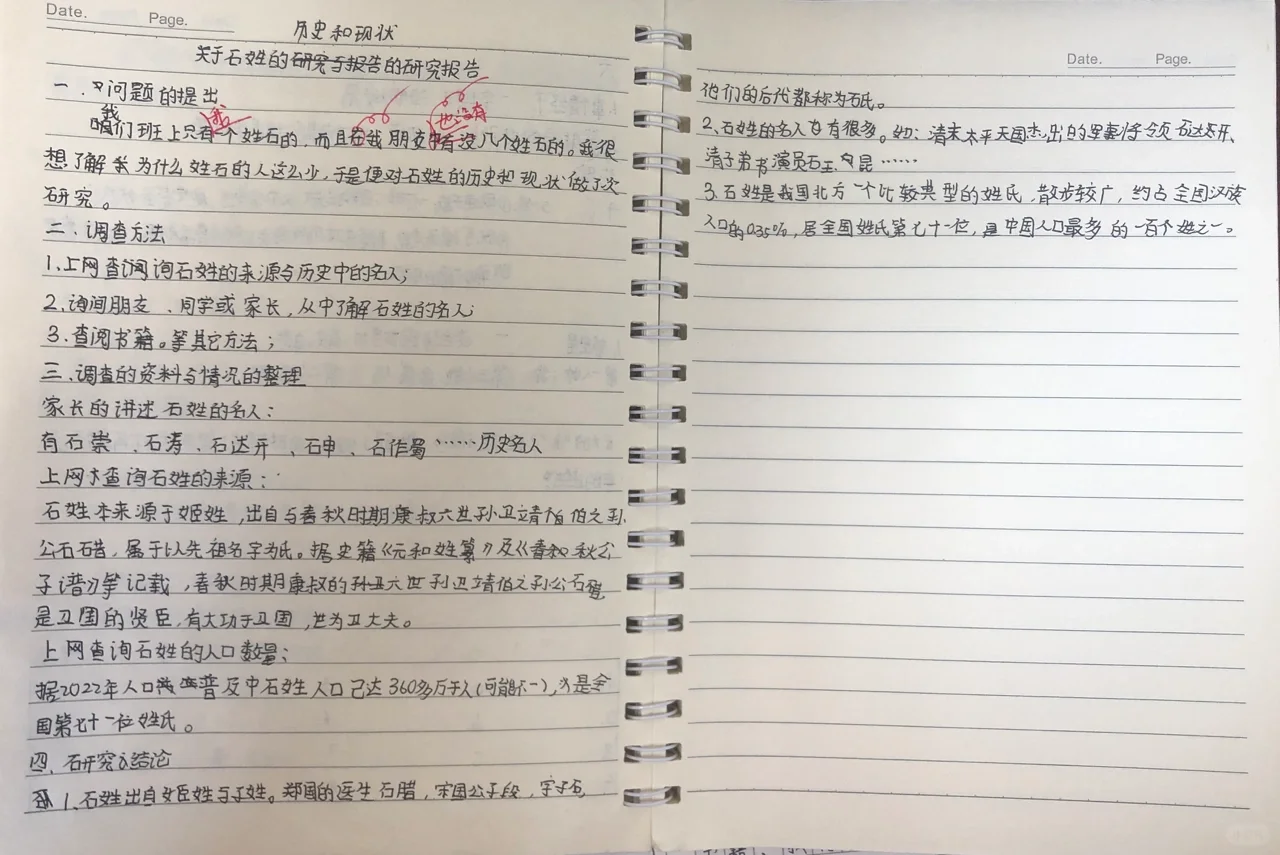 Date. Page.
历史和现状
关于石姓的研究与报告的研究报告
一.问题的提出
我们班上只有我一个姓石的，而且在我朋友中也没有几个姓石的。我很
想了解为什么姓石的人这么少，于是便对石姓的历史和现状做了次
研究。
二.调查方法
1.上网查询石姓的来源与历史中的名人；
2.询问朋友、同学或家长，从中了解石姓的名人；
3.查阅书籍。等其它方法；
三.调查的资料与情况的整理
家长的讲述石姓的名人：
有石崇、石涛、石达开、石申、石作蜀……历史名人
上网查询石姓的来源：
石姓本来源于姬姓，出自与春秋时期康叔六世孙卫靖伯之孙
公石碏，属于以先祖名字为氏。据史籍《元和姓纂》及《春秋公
子谱》等记载，春秋时期康叔的六世孙卫靖伯之孙公石碏
是卫国的贤臣，有大功于卫国，世为卫大夫。
上网查询石姓的人口数量；
据2022年人口普及中石姓人口已达360多万千人(可能不一)，是全
国第七十一位姓氏。
四.研究结论
1.石姓出自姬姓与子姓。郑国的医生石腊，宋国公子段，字子石，
Date. Page.
他们的后代都称为石氏。
2.石姓的名人有很多。如：清末太平天国杰出的将领石达开、
清子弟书演员石玉昆……
3.石姓是我国北方一个比较典型的姓氏，散步较广，约占全国汉族
人口的0.35%，居全国姓氏第七十一位，是中国人口最多的一百个姓之一。